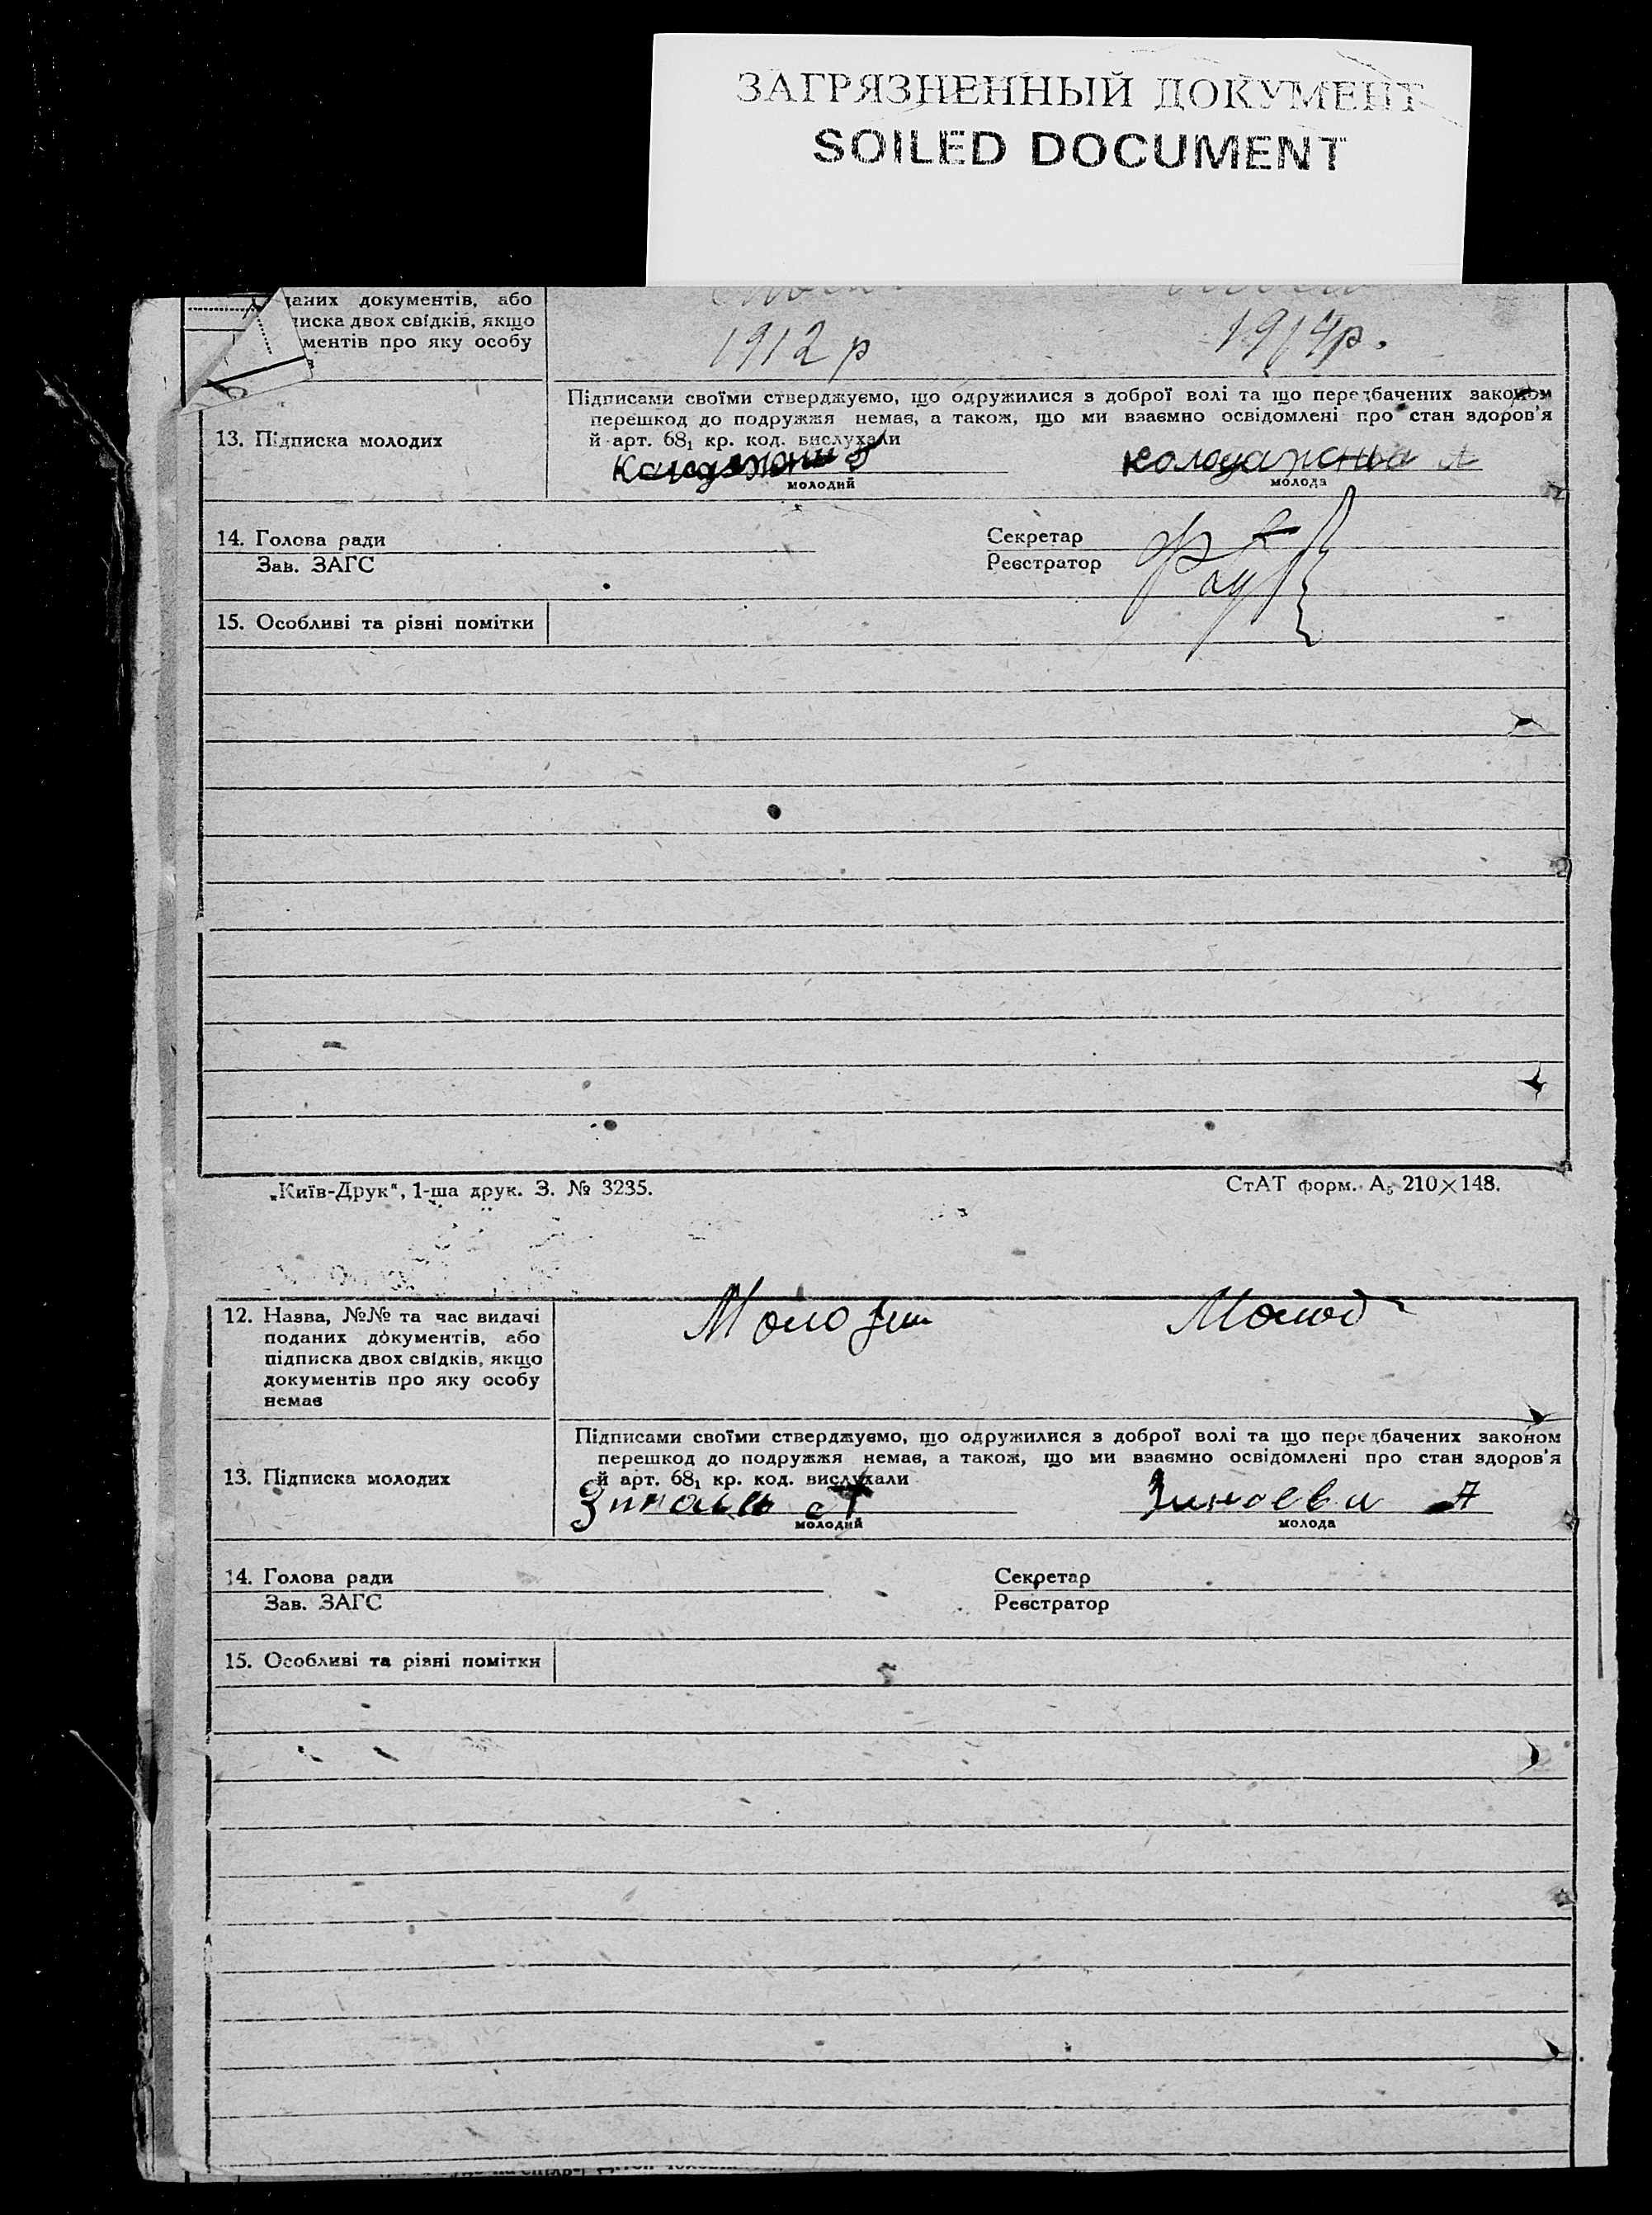 ЗАГРЯЗНЕННЫЙ ДОКУМЕНТ
SOILED DOCUMENT
даних документів, або
писка двох свідків, якщо
ментів про яку особу
в
1912 р
1914р.
Підписами своїми стверджуємо, що одружилися з доброї волі та що передбачених законом
перешкод до подружжя немає, а також, що ми взаємно освідомлені про стан здоров'я
13. Підписка молодих
й арт. 68₁ кр. код. вислухали
Колодяжна
молодий
молода
14. Голова ради
Секретар
Зав. ЗАГС
Реєстратор
15. Особливі та різні помітки
„Київ-Друк", 1-ша друк. З. № 3235.
СтАТ форм. А₅ 210×148.
12. Назва, №№ та час видачі
поданих документів, або
підписка двох свідків, якщо
документів про яку особу
немає
Молодий
Молода
Підписами своїми стверджуємо, що одружилися з доброї волі та що передбачених законом
перешкод до подружжя немає, а також, що ми взаємно освідомлені про стан здоров'я
13. Підписка молодих
й арт. 68₁ кр. код. вислухали
молодий
молода
14. Голова ради
Секретар
Зав. ЗАГС
Реєстратор
15. Особливі та різні помітки